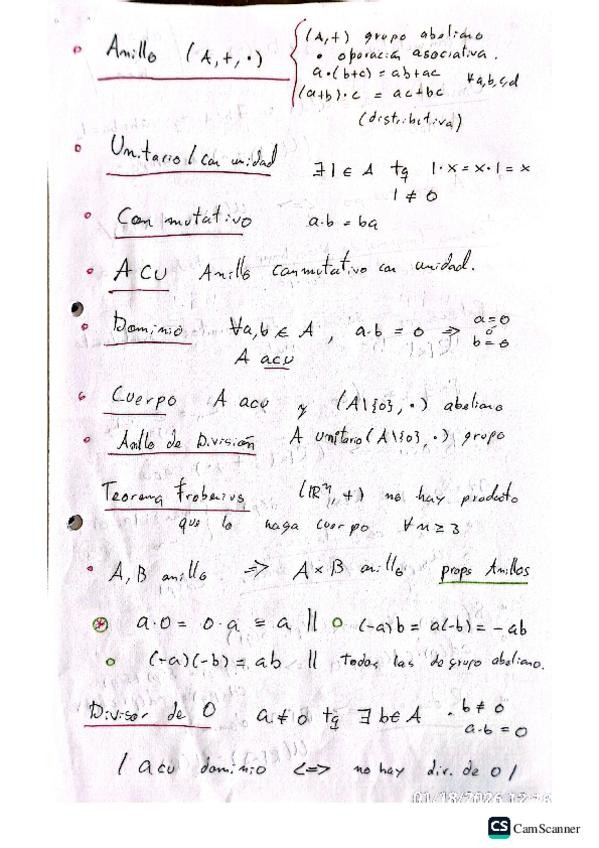 Anillo (A,+,·) { (A,+) grupo abeliano
· operación asociativa.
a·(b+c) = ab+ac ∀a,b,c,d
(a+b)·c = ac+bc
(distributiva)
Unitario / con unidad ∃ 1 ∈ A tq 1·x = x·1 = x
1 ≠ 0
Conmutativo a·b = ba
ACU Anillo conmutativo con unidad.
Dominio ∀a,b ∈ A, a·b = 0 ⇒ a=0 ó b=0
A acu
Cuerpo A acu y (A\{0}, ·) abeliano
Anillo de División A unitario (A\{0}, ·) grupo
Teorema Frobenius (ℝⁿ, +) no hay producto
que lo haga cuerpo ∀n ≥ 3
A, B anillo ⇒ A×B anillo props Anillos
⊛ a·0 = 0·a = a || (-a)b = a(-b) = -ab
(-a)(-b) = ab || todas las de grupo abeliano.
Divisor de 0 a≠0 tq ∃ b∈A · b≠0
a·b = 0
/ acu dominio <=> no hay div. de 0 /
01/18/2026
CS CamScanner